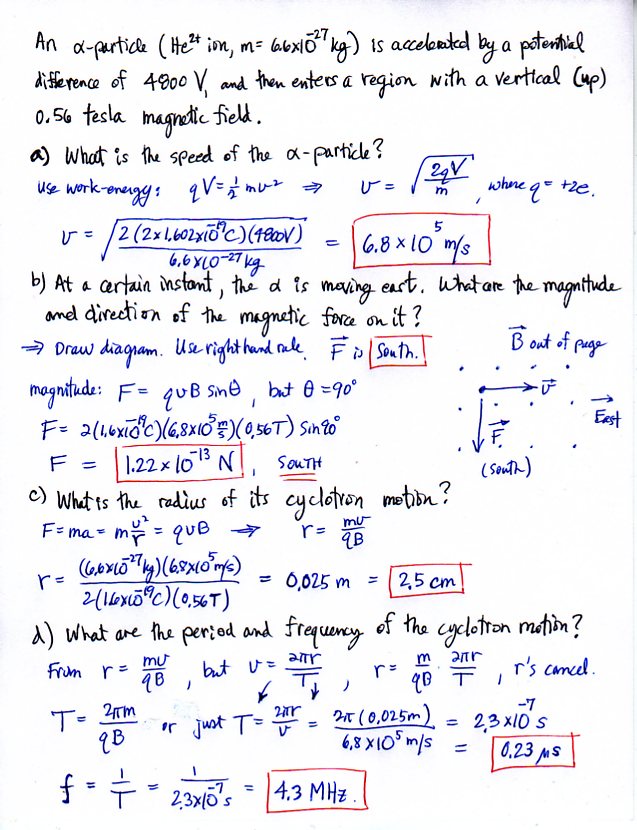 An α-particle (He²⁺ ion, m = 6.6x10⁻²⁷ kg) is accelerated by a potential
difference of 4800 V, and then enters a region with a vertical (up)
0.56 tesla magnetic field.
a) What is the speed of the α-particle?
Use work-energy: qV = ½ mv² ⇒ v = √(2qV/m), where q = +2e.
v = √(2(2x1.602x10⁻¹⁹C)(4800V) / 6.6x10⁻²⁷ kg) = 6.8 x 10⁵ m/s
b) At a certain instant, the α is moving east. What are the magnitude
and direction of the magnetic force on it?
⇒ Draw diagram. Use right hand rule. F⃗ is South.
B⃗ out of page
magnitude: F = qvB sinθ, but θ = 90°
v⃗
East
F = 2(1.6x10⁻¹⁹C)(6.8x10⁵ m/s)(0.56T) Sin90°
F⃗
(south)
F = 1.22 x 10⁻¹³ N, SOUTH
c) What is the radius of its cyclotron motion?
F = ma = m v²/r = qvB ⇒ r = mv/qB
r = (6.6x10⁻²⁷ kg)(6.8x10⁵ m/s) / 2(1.6x10⁻¹⁹C)(0.56T) = 0.025 m = 2.5 cm
d) What are the period and frequency of the cyclotron motion?
From r = mv/qB, but v = 2πr/T, r = m/qB · 2πr/T, r's cancel.
T = 2πm/qB or just T = 2πr/v = 2π(0.025m) / 6.8 x 10⁵ m/s = 2.3 x10⁻⁷ s
= 0.23 μs
f = 1/T = 1/2.3x10⁻⁷ s = 4.3 MHz.